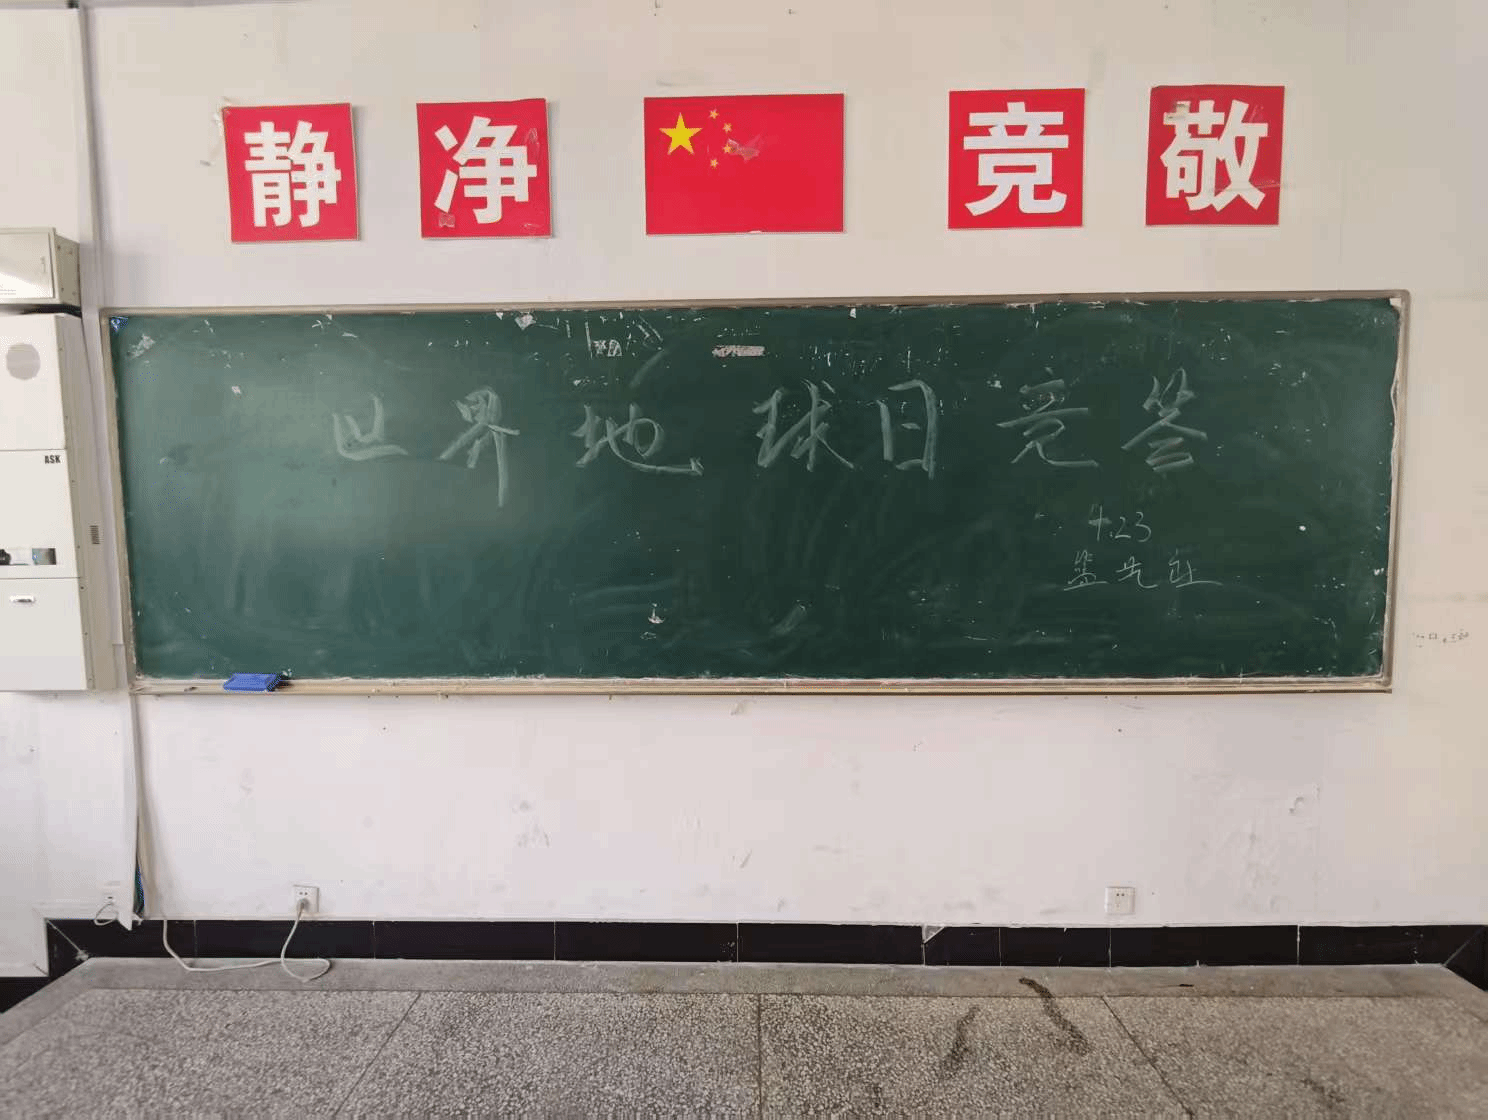 静 净 竞 敬
世界地球日竞答
ASK
4.23